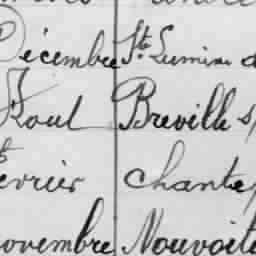 Décembre Ste Lumine d
Aout Breville s/
évrier chante
ovembre Nouvoit